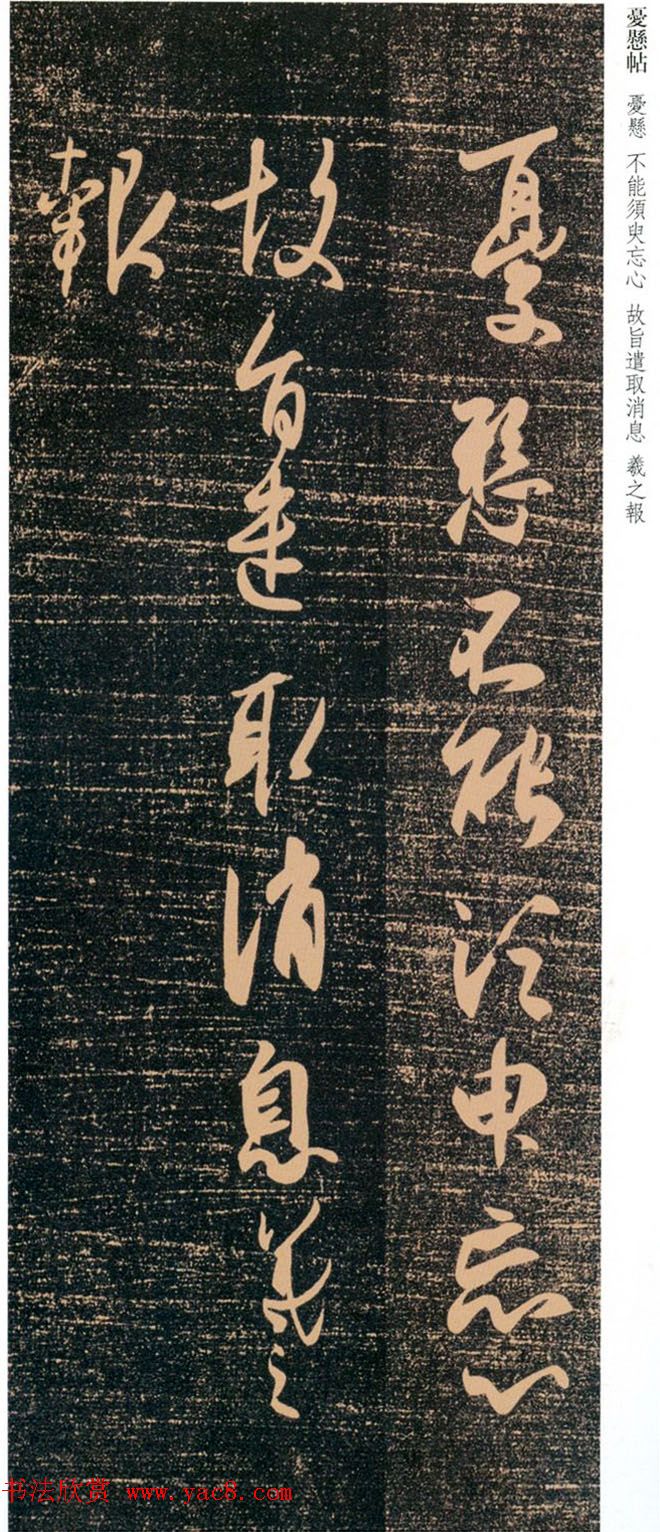 憂懸帖 憂懸 不能須臾忘心 故旨遣取消息 羲之報
憂懸不能須臾忘心
故旨遣取消息羲之
報
书法欣赏 www.yac8.com